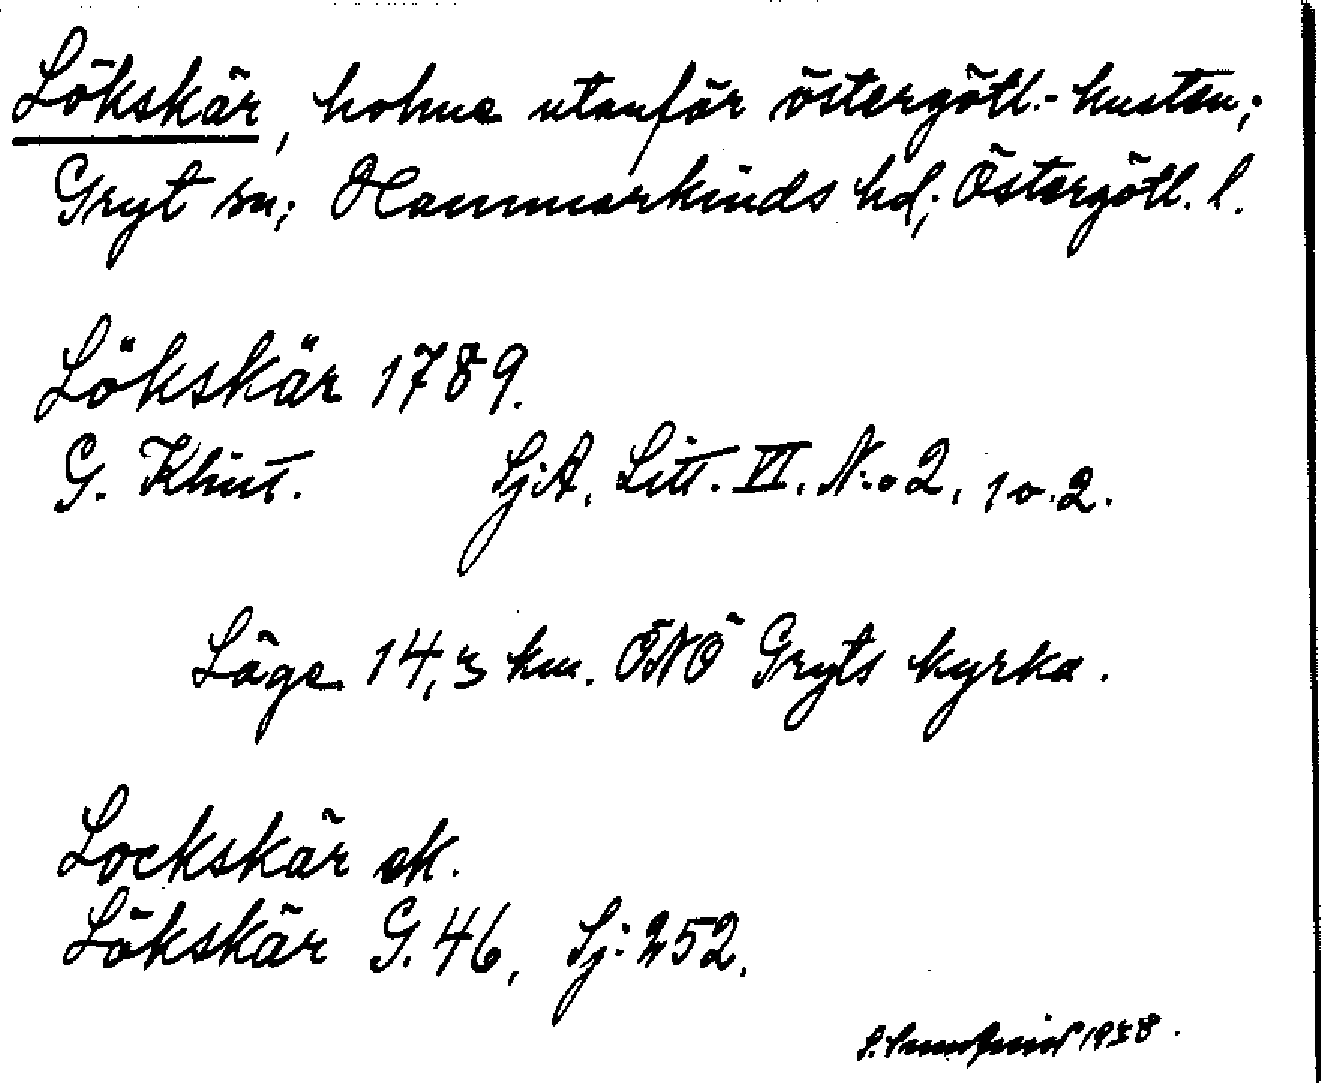 Lökskär, holme utanför östergötl.-kusten;
Gryt sn; Hammarkinds hd; Östergötl. l.
Lökskär 1789.
G. Klint. SjA. Litt. VI. N:o 2, 1 o. 2.
Läge 14,3 km. ÖNÖ Gryts kyrka.
Lockskär ek.
Lökskär G. 46, Sj: 252.
1938.